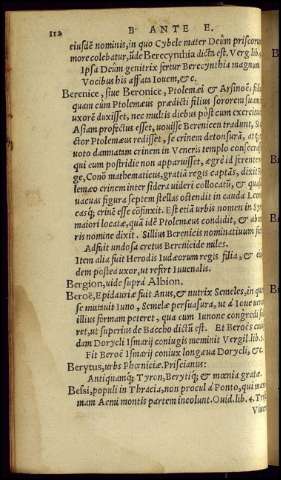 112 B ANTE E.
eiusdē nominis, in quo Cybele mater Deûm priscorum
more colebatur, uide Berecynthia dicta est. Verg. lib.
Ipsa Deûm genitrix fertur Berecynthia magnum
Vocibus his affata Iouem, &c.
Berenice, siue Beronice, Ptolemæi & Arsinoës filia,
quam cùm Ptolemæus prædicti filius sororem suam
uxorē duxisset, nec multis diebus pòst cum exercitu
Asiam profectus esset, uouisse Berenicen tradunt, si
ctor Ptolemæus redisset, se crinem detonsurā, at
uoto damnatam crinem in Veneris templo consecra
qui cum postridie non apparuisset, ægrè id ferente
ge, Conō mathematicus, gratiā regis captās, dixit
lemæo crinem inter sidera uideri collocatū, &
uacuas figura septem stellas ostendit in cauda
easq́; crinē esse cōfinxit. Est etiā urbis nomen in Sy
maiori locatæ, quā idē Ptolemæus condidit, &
ris nomine dixit. Sillius Berenicis nominatiuum
Adfuit undosa cretus Berenicide miles.
Item alia fuit Herodis Iudæorum regis filia, &
dem postea uxor, ut refert Iuuenalis.
Bergion, uide suprà Albion.
Beroë, Epidauriæ fuit Anus, & nutrix Semeles, in
se mutauit Iuno, Semelæ persuasura, ut à Ioue
illius formam peteret, qua cum Iunone congredi
ret, ut superius de Baccho dictū est. Et Beroës
dam Dorycli Ismarij coniugis meminit Vergil. lib.
Fit Beroë Ismarij coniux longæua Dorycli, &c.
Berytus, urbs Phœnicæ. Priscianus:
Antiquamq́; Tyron, Berytiq́; & mœnia grata.
Bessi, populi in Thracia, non procul à Ponto, qui
mam Aemi montis partem incolunt. Ouid. lib. 4.